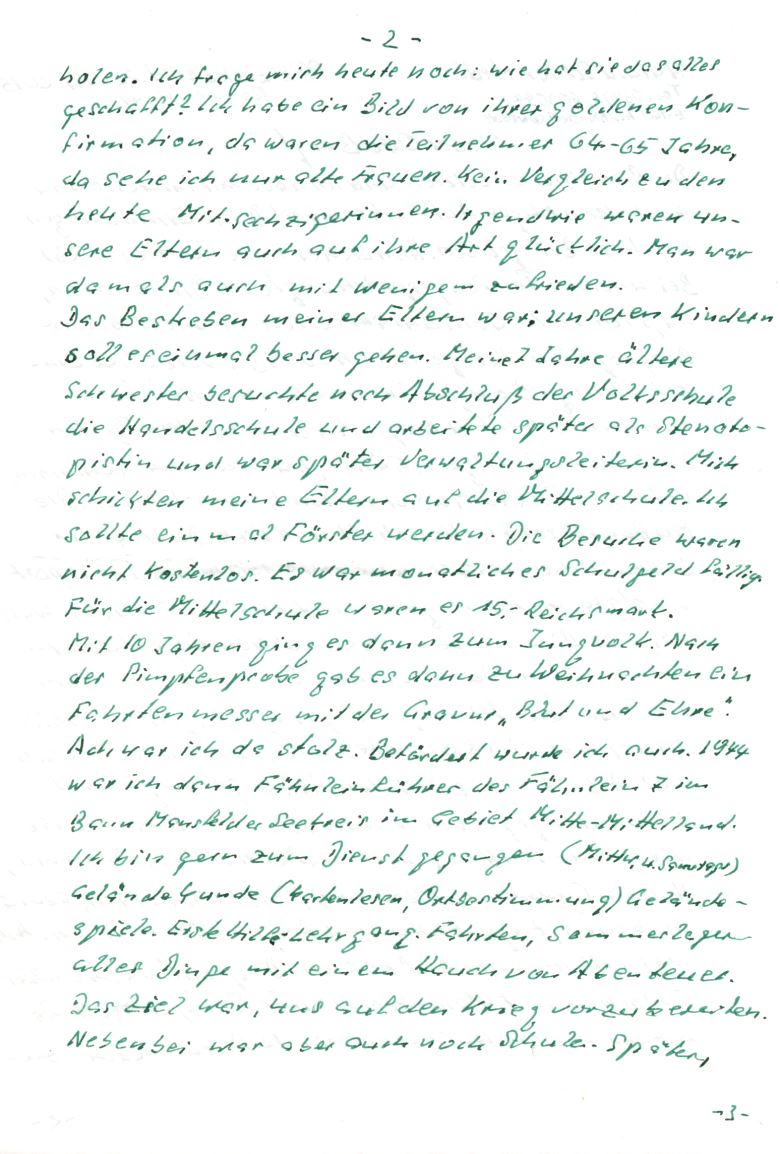 - 2 -
holen. Ich frage mich heute noch: wie hat sie das alles
geschafft? Ich habe ein Bild von ihrer goldenen Kon-
firmation, da waren die Teilnehmer 64-65 Jahre,
da sehe ich nur alte Frauen. Kein Vergleich zu den
heute Mit.sechzigerinnen. Irgendwie waren un-
sere Eltern auch auf ihre Art glücklich. Man war
damals auch mit wenigem zufrieden.
Das Bestreben meiner Eltern war; unseren Kindern
soll es einmal besser gehen. Meine 7 Jahre ältere
Schwester besuchte nach Abschluß der Volksschule
die Handelsschule und arbeitete später als Stenoty-
pistin und war später Verwaltungsleiterin. Mich
schickten meine Eltern auf die Mittelschule. Ich
sollte einmal Förster werden. Die Besuche waren
nicht kostenlos. Es war monatliches Schulgeld fällig.
Für die Mittelschule waren es 15,- Reichsmark.
Mit 10 Jahren ging es dann zum Jungvolk. Nach
der Pimpfenprobe gab es dann zu Weihnachten ein
Fahrtenmesser mit der Gravur „Blut und Ehre“.
Ach war ich da stolz. Befördert wurde ich auch. 1944
war ich dann Fähnleinführer des Fähnlein 7 im
Bann Mansfelder Seekreis im Gebiet Mitte-Mittelland.
Ich bin gern zum Dienst gegangen (Mittw. u. Samstags)
Geländekunde (Kartenlesen, Ortsbestimmung) Gelände-
spiele. Erste Hilfe-Lehrgang. Fahrten, Sommerlager
alles Dinge mit einem Hauch von Abenteuer.
Das Ziel war, uns auf den Krieg vorzubereiten.
Nebenbei war aber auch noch Schule. Später,
-3-